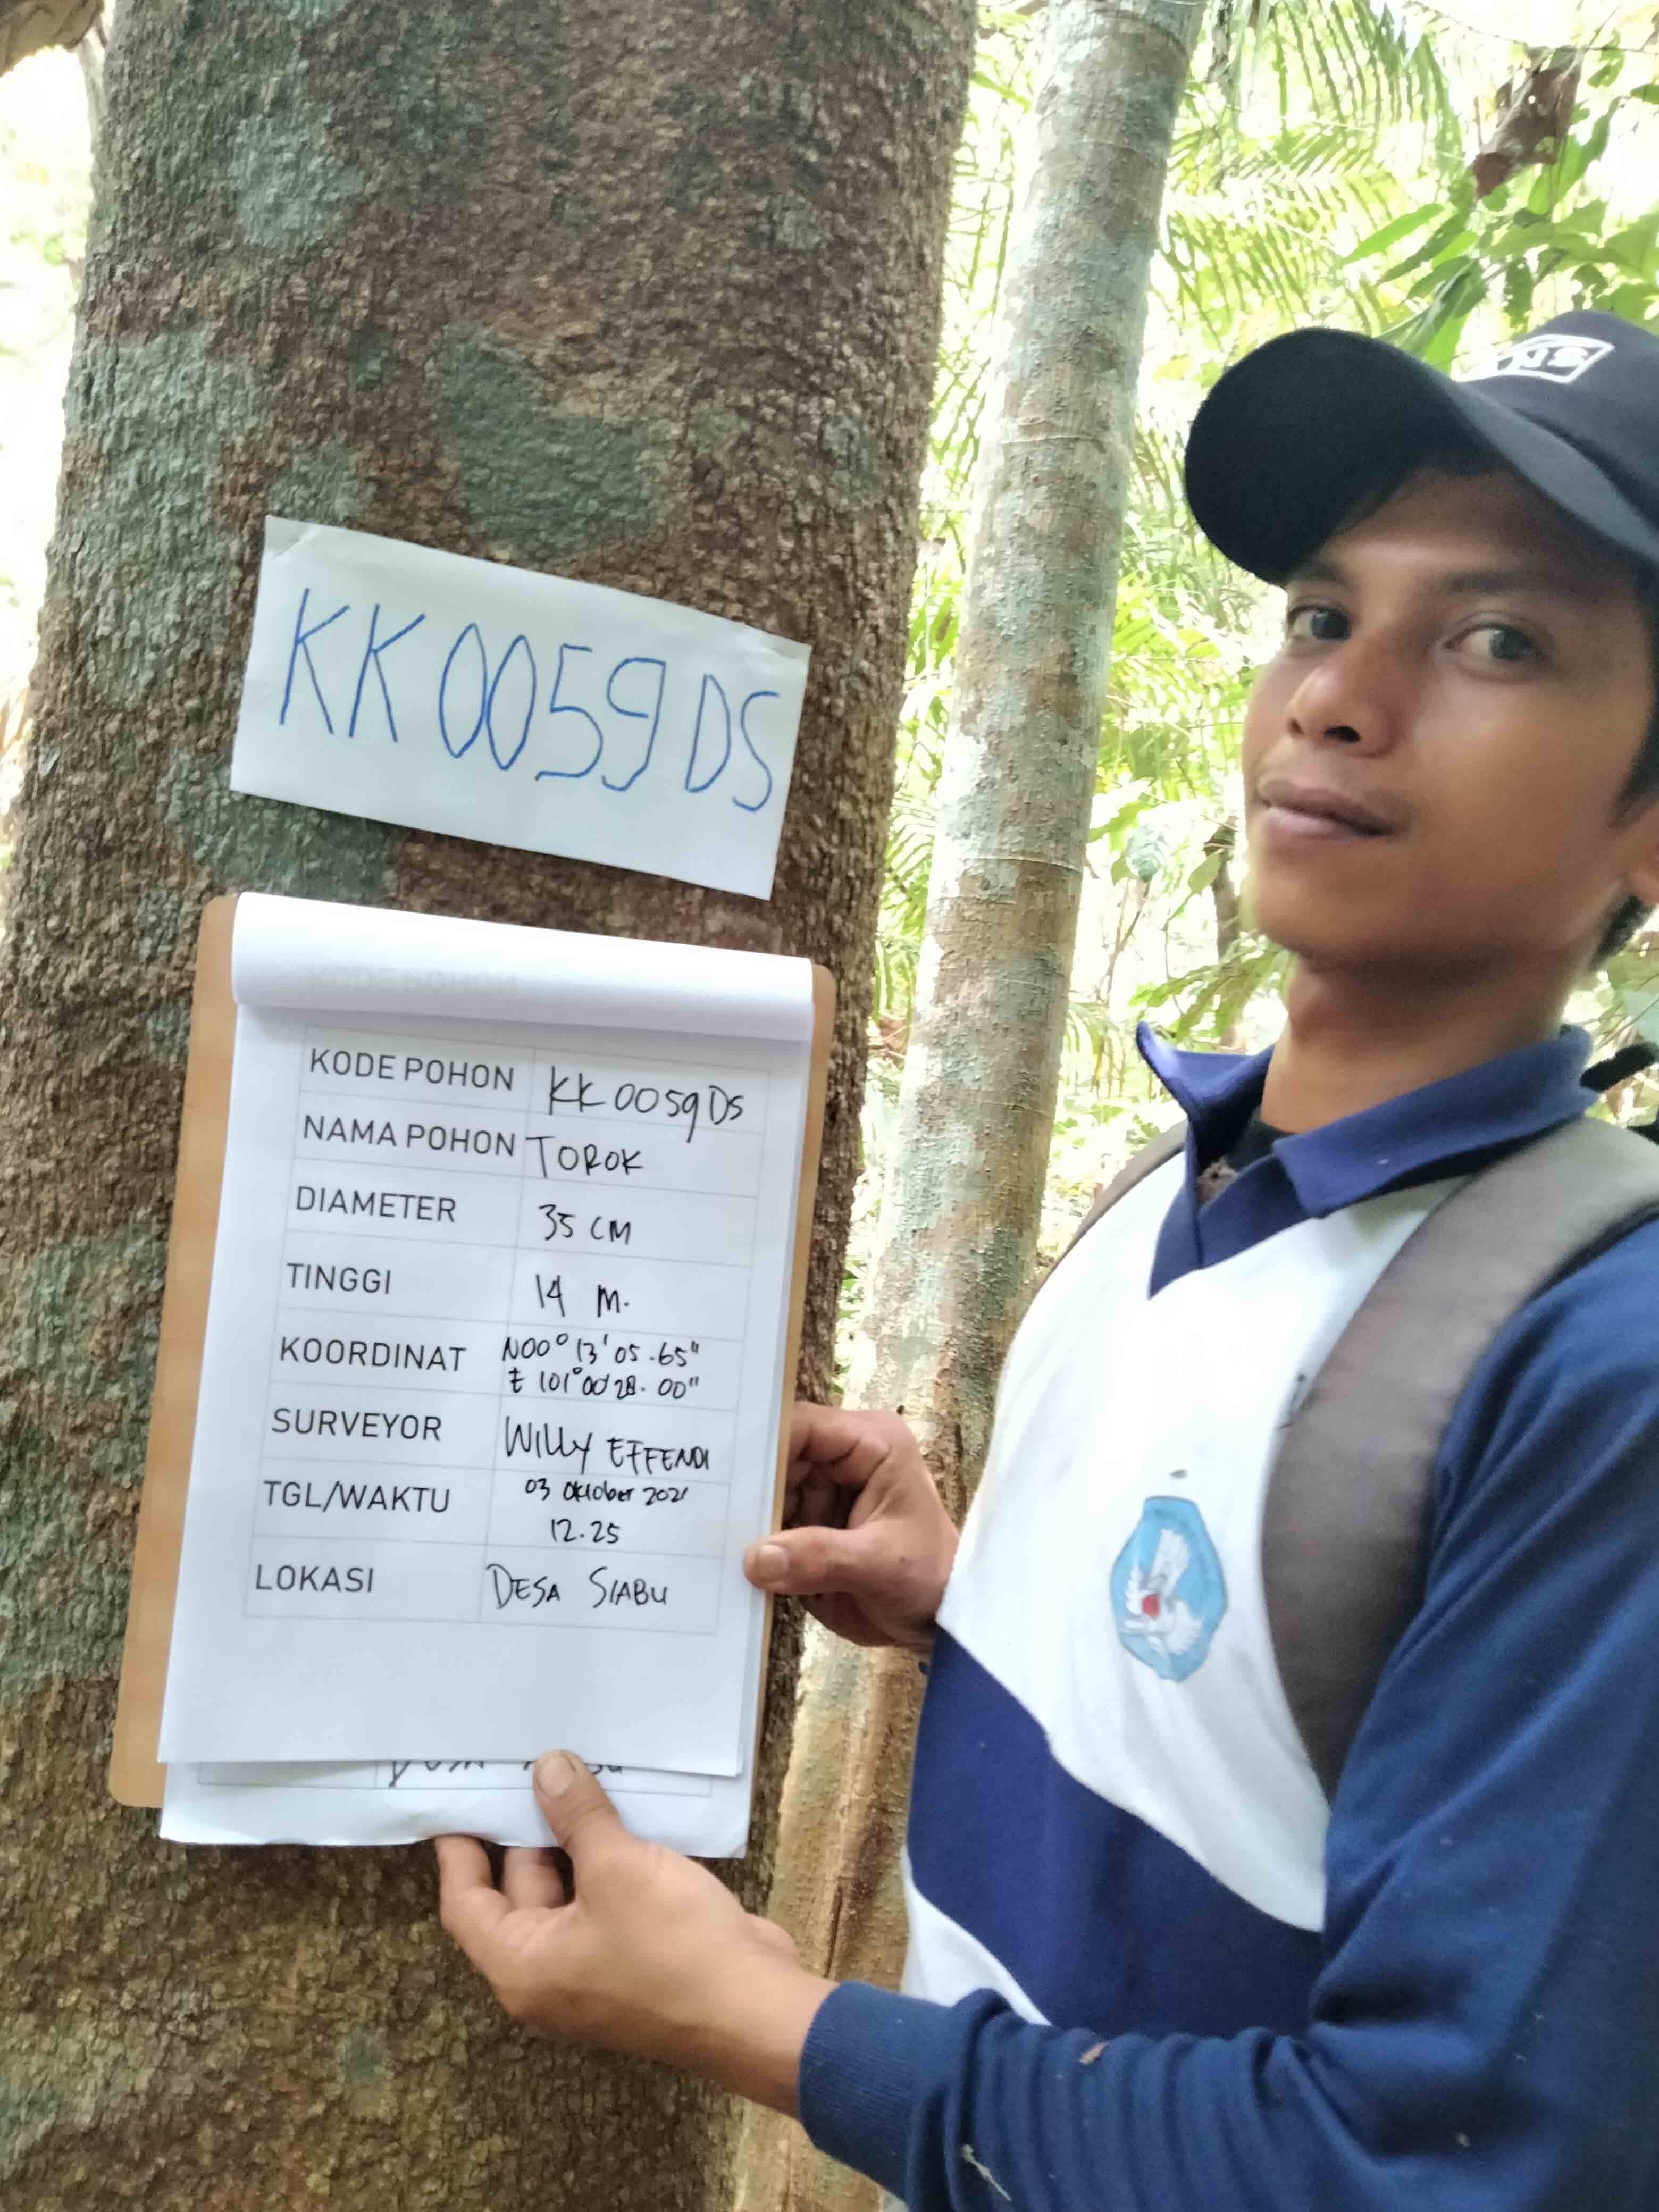 KK0059DS
KODE POHON KK0059DS
NAMA POHON TOROK
DIAMETER 35 CM
TINGGI 14 M.
KOORDINAT N00°13'05.65"
E 101°00'28.00"
SURVEYOR WILLY EFFENDI
TGL/WAKTU 03 Oktober 2021
12.25
LOKASI DESA SIABU